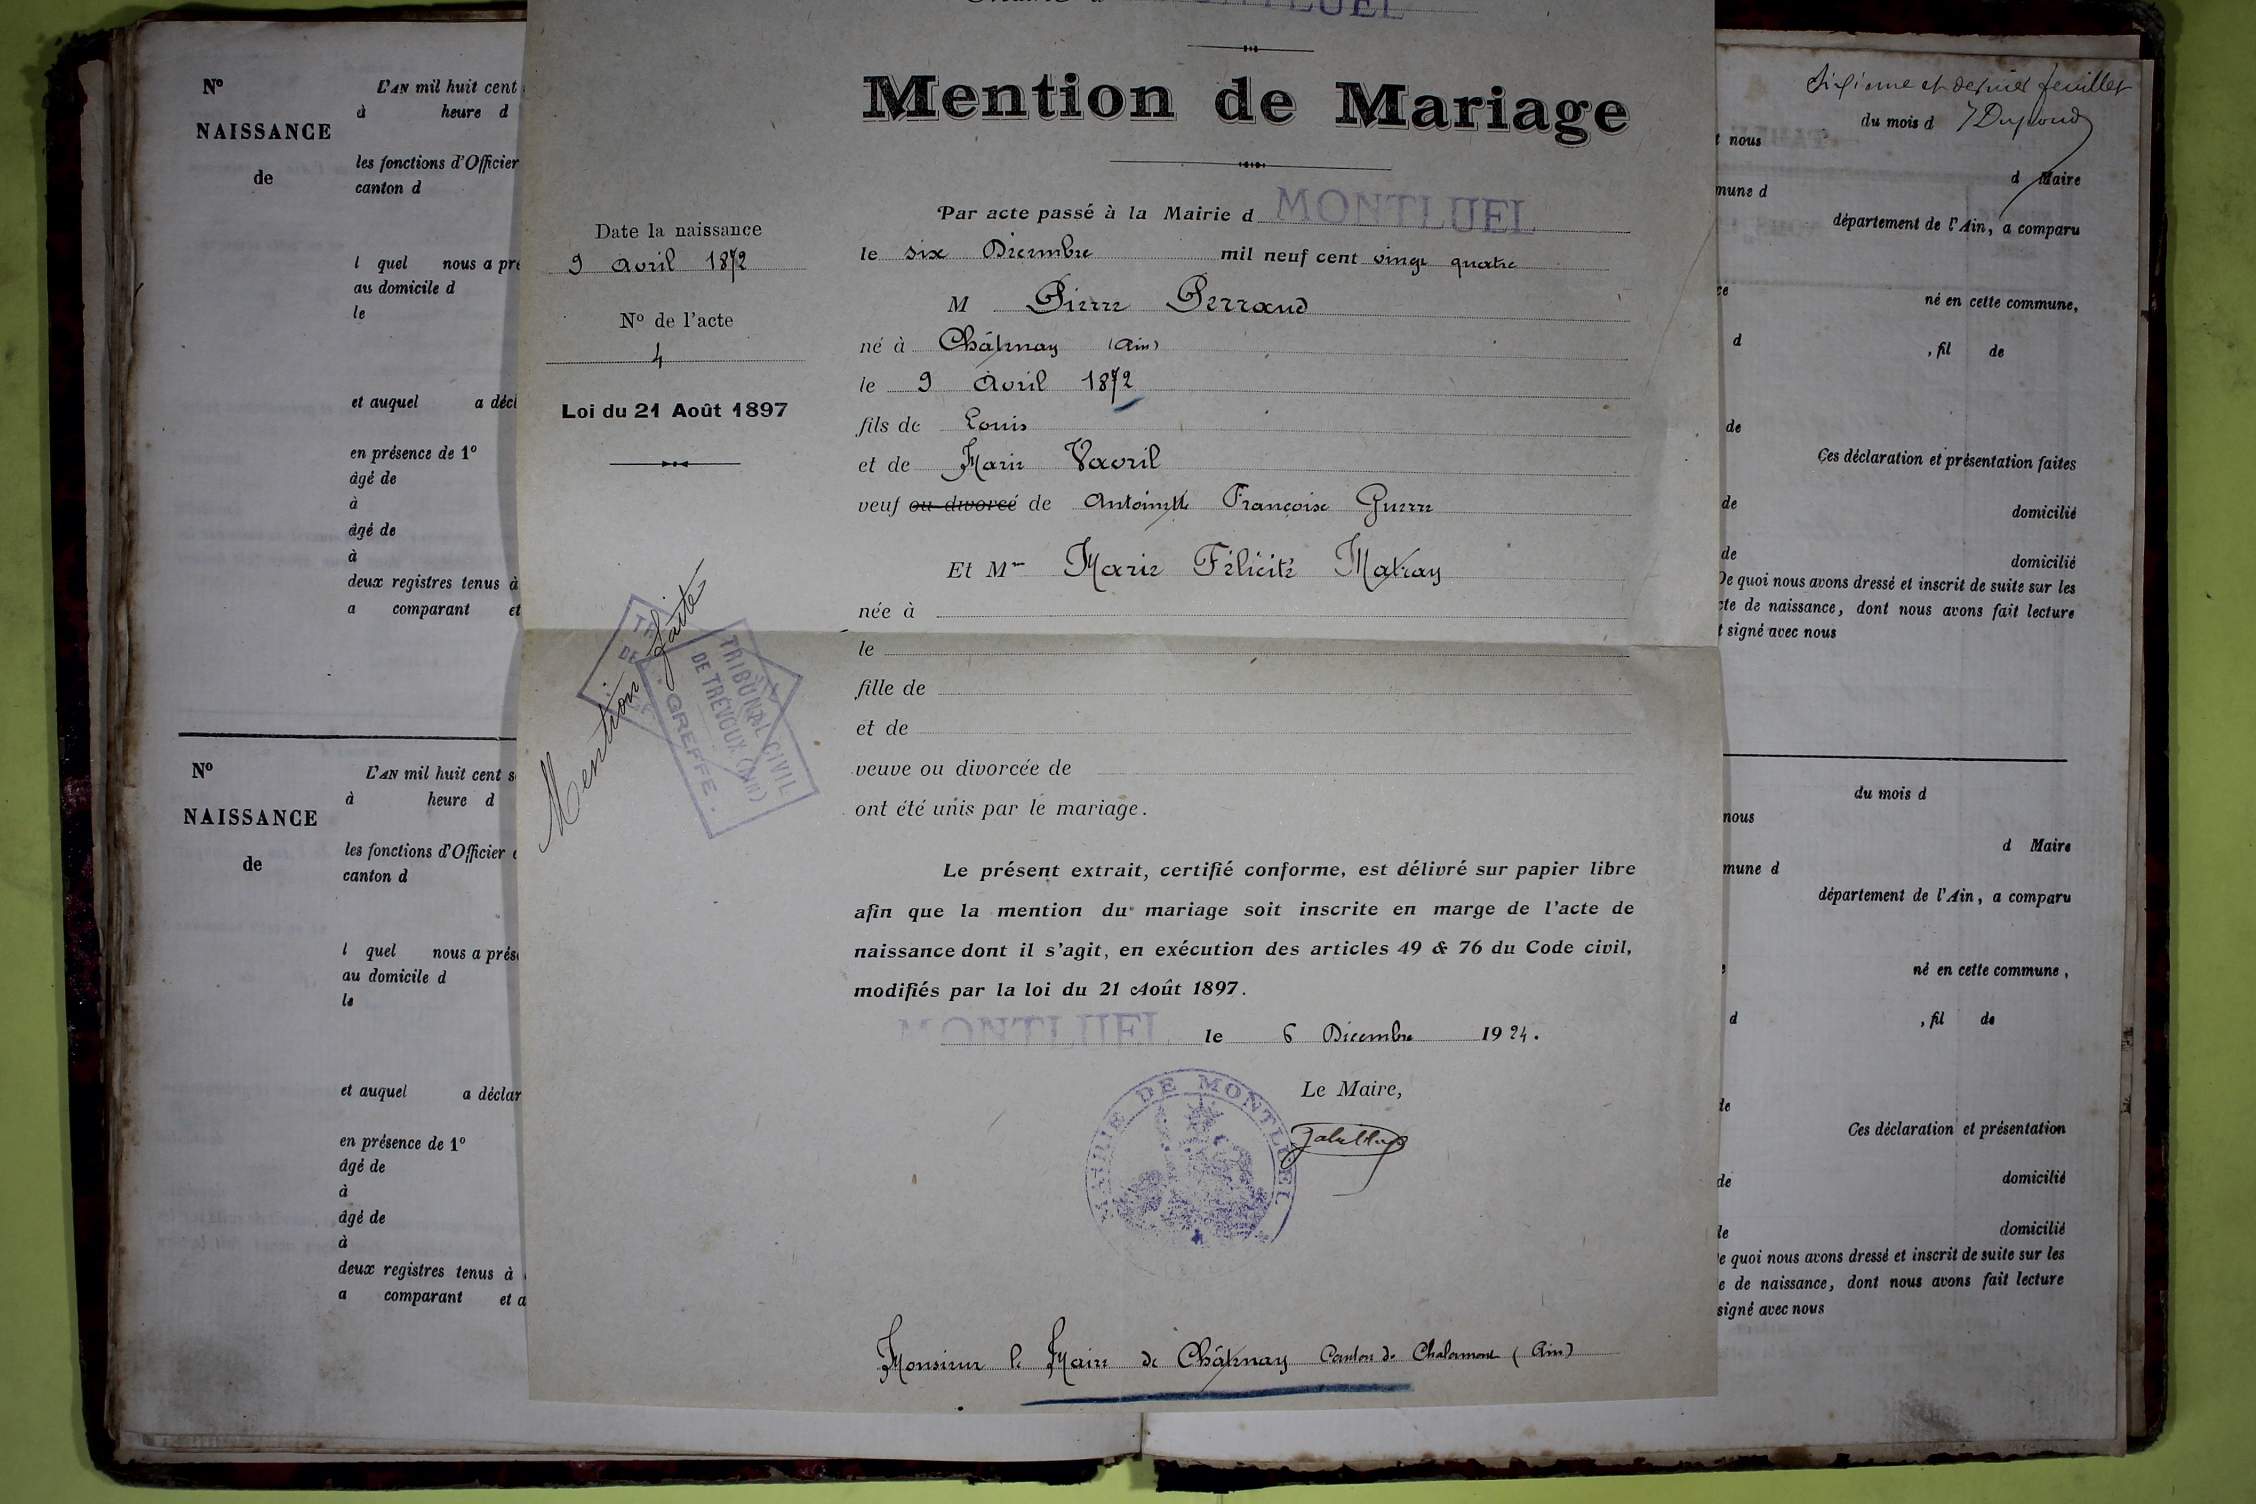 Nº
L'AN mil huit cent
à heure d
NAISSANCE
les fonctions d'Officier
de
canton d
l quel nous a pré
au domicile d
le
et auquel a décl
en présence de 1º
âgé de
à
âgé de
à
deux registres tenus à
a comparant et
Nº
L'AN mil huit cent s
à heure d
NAISSANCE
les fonctions d'Officier
de
canton d
l quel nous a prés
au domicile d
le
et auquel a déclar
en présence de 1º
âgé de
à
âgé de
à
deux registres tenus à
a comparant et a
MONTLUEL
Mention de Mariage
Date la naissance
9 Avril 1872
Nº de l'acte
4
Loi du 21 Août 1897
Mention faite
TRIBUNAL CIVIL
DE TRÉVOUX (AIN)
GREFFE.
Par acte passé à la Mairie d MONTLUEL
le six Décembre mil neuf cent vingt quatre
M Pierre Perraud
né à Châtenay (Ain)
le 9 Avril 1872
fils de Louis
et de Marie Vavril
veuf ou divorcé de Antoinette Françoise Guerre
Et Mme Marie Félicité Matray
née à
le
fille de
et de
veuve ou divorcée de
ont été unis par le mariage.
Le présent extrait, certifié conforme, est délivré sur papier libre
afin que la mention du mariage soit inscrite en marge de l'acte de
naissance dont il s'agit, en exécution des articles 49 & 76 du Code civil,
modifiés par la loi du 21 Août 1897.
MONTLUEL le 6 Décembre 1924.
Le Maire,
MAIRIE DE MONTLUEL
Monsieur le Maire de Châtenay Canton de Chalamont (Ain)
Sixième et dernier feuillet
du mois d Dupond
t nous
d Maire
mune d
département de l'Ain, a comparu
ce né en cette commune,
d , fil de
de
Ces déclaration et présentation faites
de domicilié
de domicilié
De quoi nous avons dressé et inscrit de suite sur les
cte de naissance, dont nous avons fait lecture
t signé avec nous
du mois d
nous
d Maire
mune d
département de l'Ain, a comparu
e né en cette commune,
d , fil de
de
Ces déclaration et présentation
de domicilié
de domicilié
e quoi nous avons dressé et inscrit de suite sur les
e de naissance, dont nous avons fait lecture
signé avec nous